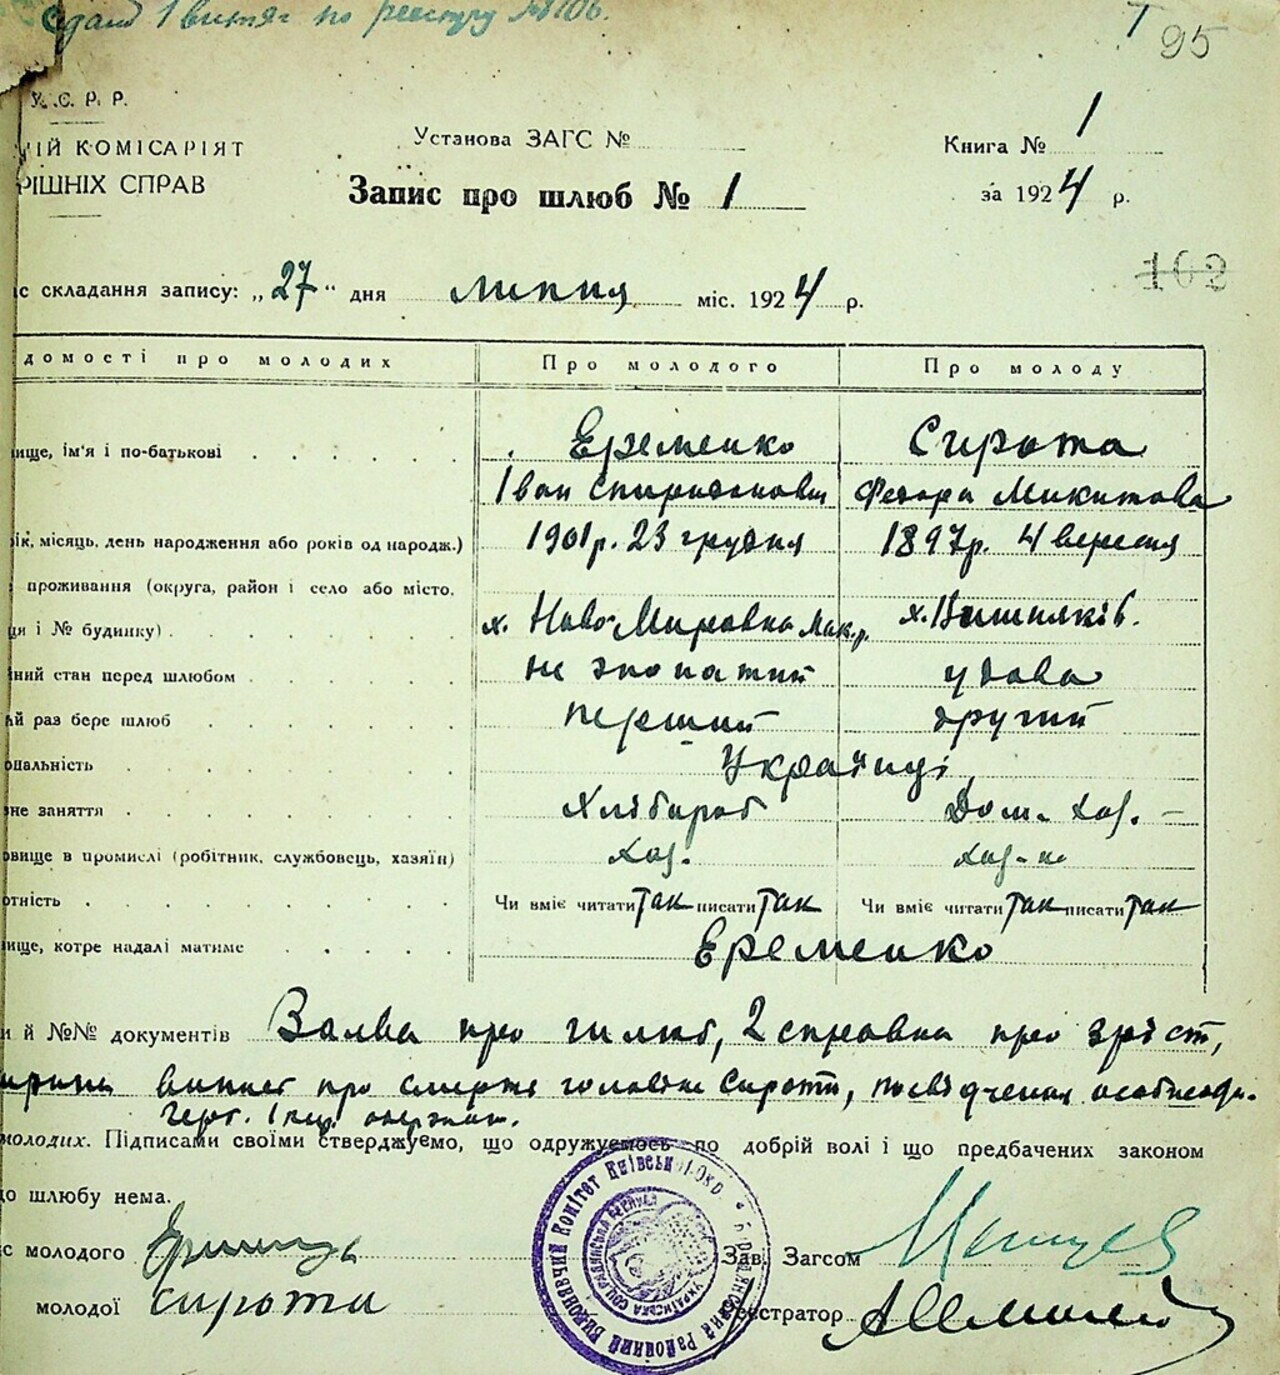 Едані 1 витяг по реєстру № 1106.
95
У. С. Р. Р.
ІЙ КОМІСАРІЯТ
РІШНІХ СПРАВ
Установа ЗАГС №
Книга № 1
Запис про шлюб № 1
за 1924 р.
102
с складання запису: „27“ дня липня міс. 1924 р.
домості про молодих
Про молодого
Про молоду
ище, ім'я і по-батькові
Еременко
Сирота
Іван Спиридонович
Федора Микитовa
ік, місяць, день народження або років од народж.)
1901 р. 23 грудня
1897 р. 4 вересня
проживання (округа, район і село або місто,
ци і № будинку)
х. Ново-Мировка Мак. р.
х. Вишняків.
ний стан перед шлюбом
не жонатий
удова
ий раз бере шлюб
перший
другий
ональність
Українці
не заняття
Хлібороб
Дом. хаз. –
овище в промислі (робітник, службовець, хазяїн)
хаз.
хаз-н
отність
Чи вміє читати так писати так
Чи вміє читати так писати так
ище, котре надалі матиме
Еременко
и й №№ документів Заява про шлюб, 2 справки про зріст,
виписг про смерть чоловіка Сироти, посвідчення особисоди.
1
молодих. Підписами своїми стверджуємо, що одружуємось по добрій волі і що предбачених законом
до шлюбу нема.
с молодого
Зав. Загсом
молодої Сирота
Реєстратор
Районний Виконавчий Комітет Київськ. Окр.
Українська Соц. Радянська Республ.